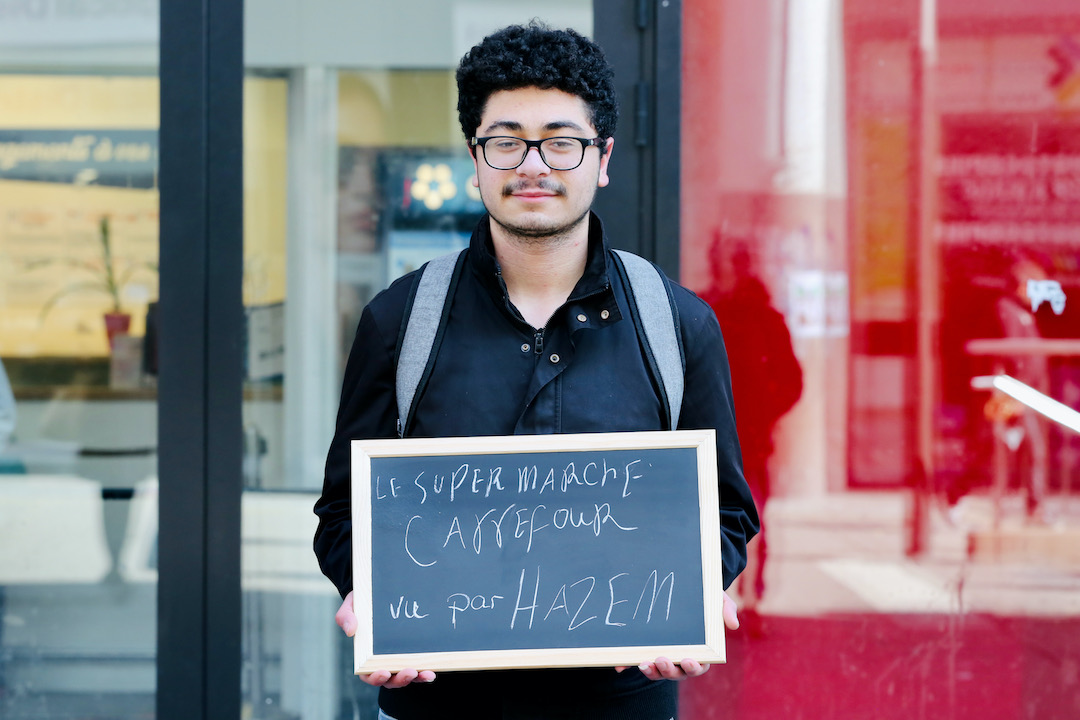 LE SUPER MARCHE
CARREFOUR
vu par HAZEM